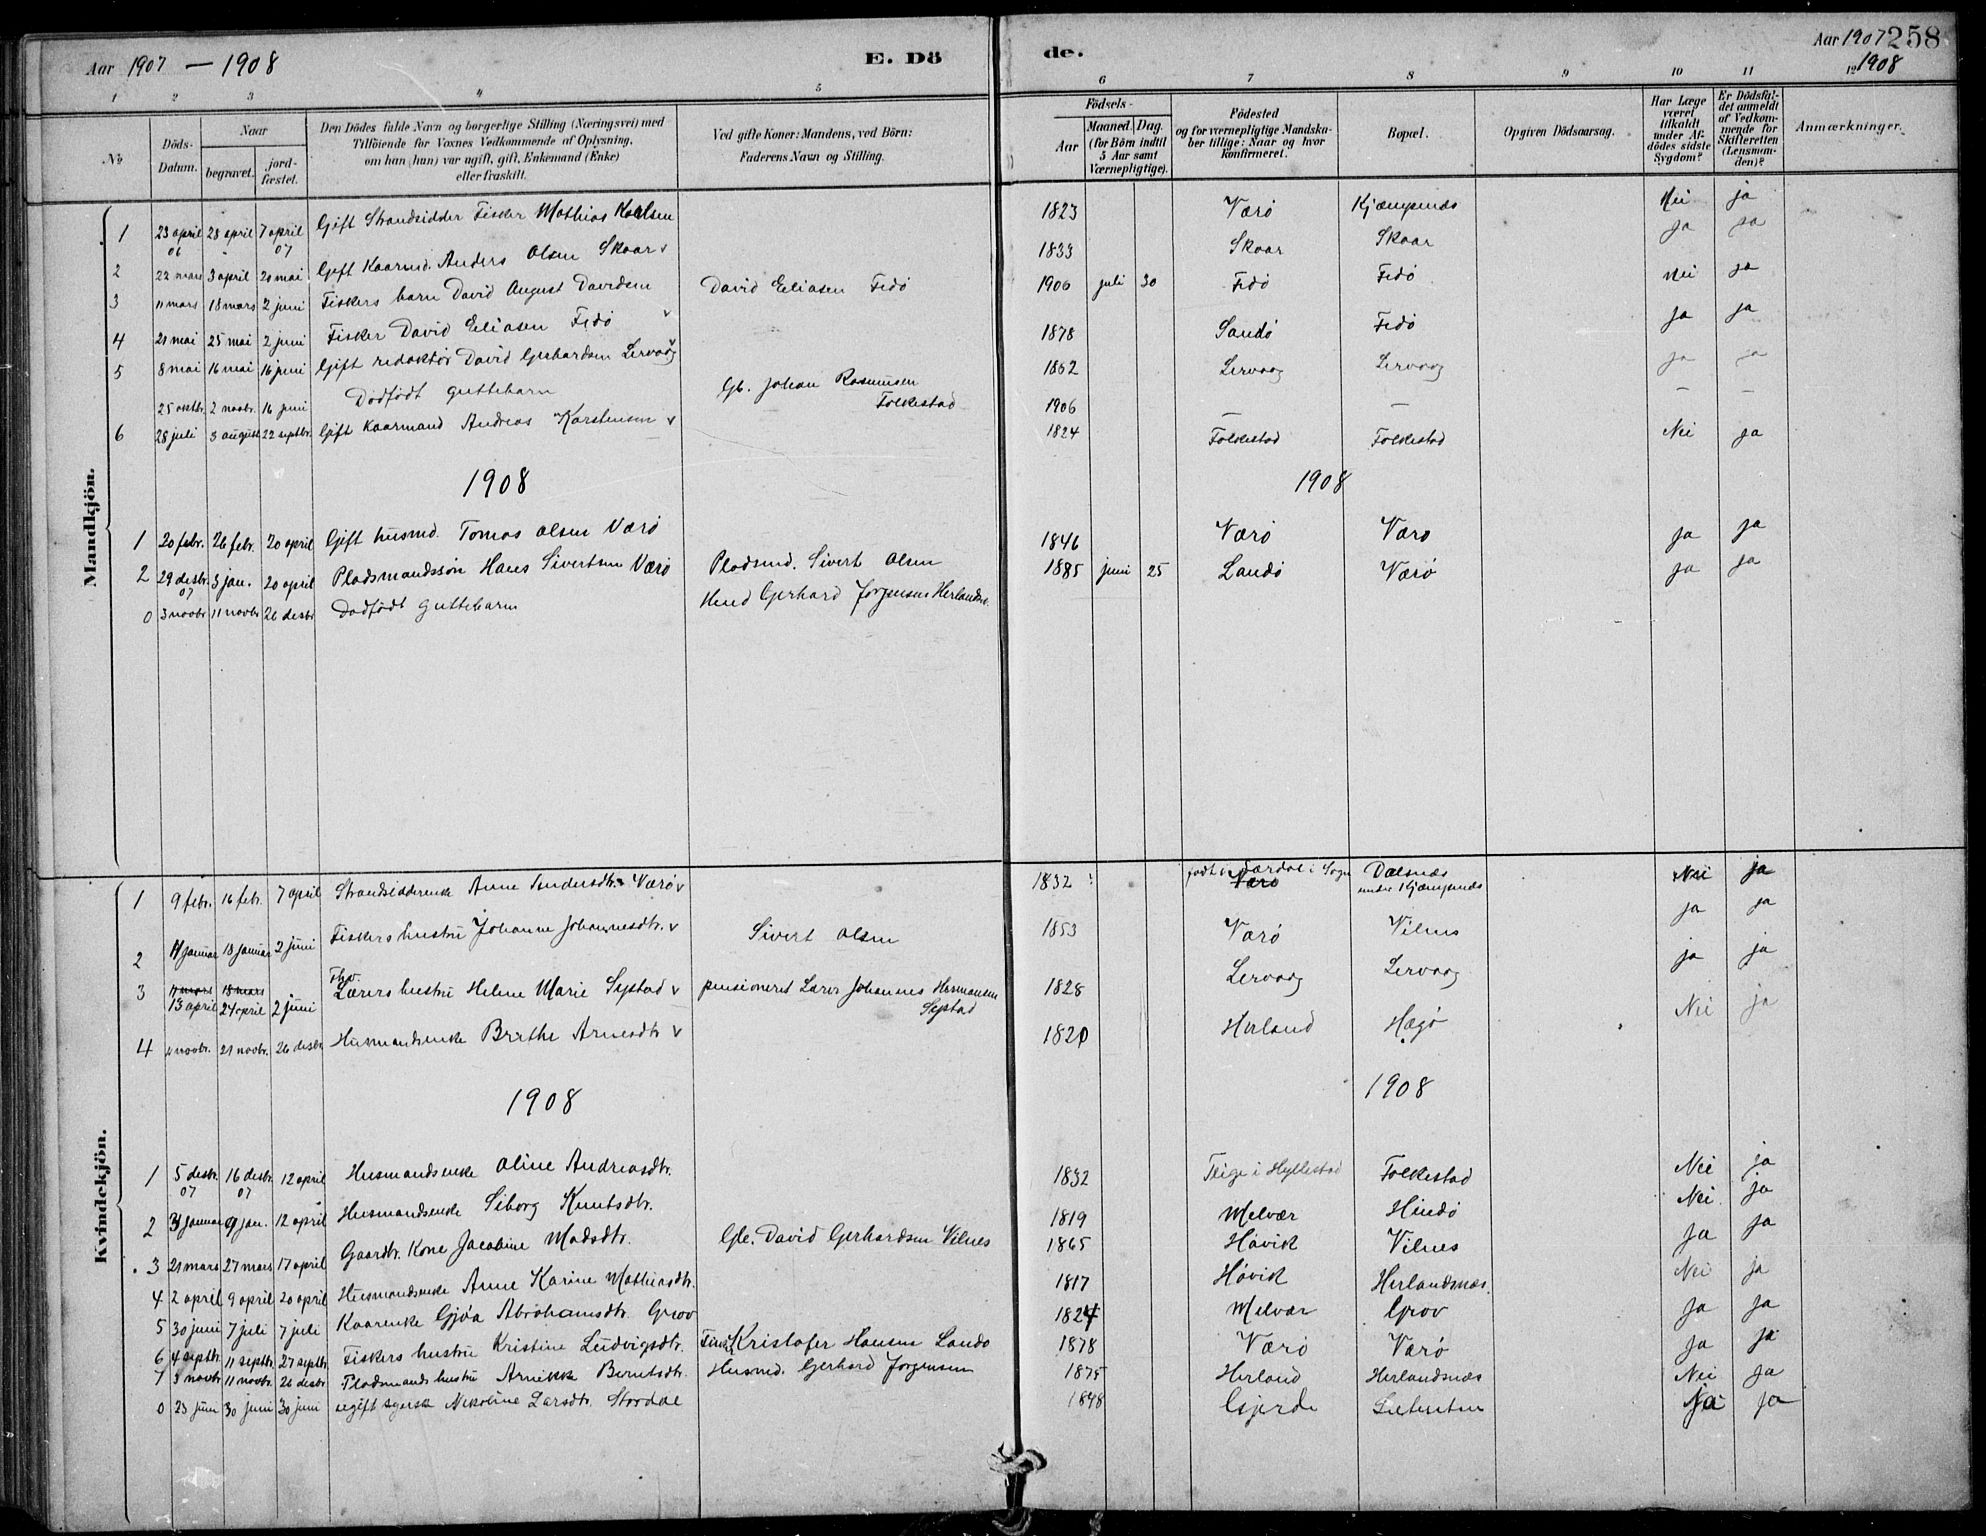 Aar 1907 — 1908 E. Dö
de. Aar 1907 258
1908
1 2 3 4 5 6 7 8 9 10 11 12
No
Döds-Datum.
Naar
begravet.
jord-fæstet.
Den Dödes fulde Navn og borgerlige Stilling (Næringsvei) med
Tilföiende for Voxnes Vedkommende af Oplysning,
om han (hun) var ugift, gift, Enkemand (Enke)
eller fraskilt.
Ved gifte Koner: Mandens, ved Börn:
Faderens Navn og Stilling.
Födsels-
Aar
Maaned. Dag.
(for Börn indtil
5 Aar samt
Værnepligtige).
Födested
og for værnepligtige Mandska-
ber tillige: Naar og hvor
konfirmeret.
Bopæl.
Opgiven Dödsaarsag.
Har Læge
været
tilkaldt
under Af-
dödes sidste
Sygdom?
Er Dödsfal-
det anmeldt
af Vedkom-
mende for
Skifteretten
(Lensman-
den)?
Anmærkninger.
Mandkjön.
1 23 april 06 28 april 7 april 07 Gift Strandsidder Fisker Mathias Karlsen 1823 Værö Kjæmpenæs Nei ja
2 22 mars 3 april 20 mai Gift Kaarmd. Anders Olsen Skaar v 1833 Skaar Skaar ja ja
3 11 mars 18 mars 2 juni Fiskers barn David August Davidsen David Eliasen Fedö 1906 juli 30 Fedö Fedö Nei ja
4 21 mai 25 mai 2 juni Fisker David Eliasen Fedö v 1878 Sandö Fedö ja ja
5 8 mai 16 mai 16 juni Gift redaktör David Gerhardsen Lervaag v 1862 Lervaag Lervaag ja ja
25 oktbr. 2 novbr. 16 juni Dödfödt guttebarn Gb. Johan Rasmusen Folkestad 1906 — — — —
6 28 juli 3 august 22 septbr. Gift Kaarmand Andreas Karstensen v 1824 Folkestad Folkestad Nei ja
1908 1908
1 20 febr. 26 febr. 20 april Gift husmd. Tomas Olsen Værö 1846 Værö Værö ja ja
2 29 desbr. 07 3 jan. 20 april Pladsmandssön Hans Sivertsen Værö Pladsmd. Sivert Olsen 1885 juni 25 Landö Værö ja ja
0 3 novbr 11 novbr 26 desbr Dödfödt guttebarn Hmd Gerhard Jörgensen Herlandsn.
Kvindekjön.
1 9 febr. 16 febr. 7 april Strandsidderenke Anne Andersdtr. Værö v 1832 födt i Lærdal i Sogn Værö Dalsnæs under Kjæmpenæs Nei ja
2 11 januar 18 januar 2 juni Fiskers hustru Johanne Johannesdtr. v Sivert Olsen 1853 Værö Vilnes ja ja
3 11 mars 18 mars
13 april 24 april 2 juni Fhv. Lærers hustru Helene Marie Systad v pensioneret Lærer Johannes Hermansen Systad 1828 Lervaag Lervaag ja ja
4 novbr. 21 novbr. 26 desbr. Husmandsenke Brithe Arnesdtr v 1820 Herland Hægö Nei ja
1908 1908
1 5 desbr. 07 16 desbr. 07 12 april Husmandsenke Oline Andreasdtr. 1832 Teige i Hyllestad Folkestad Nei ja
2 31 januar 9 jan. 12 april Husmandsenke Siborg Knutsdtr. 1819 Melvær Hindö Nei ja
3 21 mars 27 mars 17 april Gaardbr. Kone Jacobine Madsdtr. Gb. David Gerhardsen Vilnes 1865 Hövik Vilnes ja ja
4 2 april 9 april 20 april Husmandsenke Anne Karine Mathiasdtr. 1817 Hövik Herlandsnæs. Nei ja
5 30 juni 7 juli 7 juli Kaarenke Gjöa Abrahamsdtr. Grov 1824 Melvær Grov ja ja
6 4 septbr 11 septbr. 27 septbr Fiskers hustru Kristine Ludvigsdtr. Kristofer Hansen Landö 1878 Værö Værö ja ja
7 3 novbr 11 novbr. 26 desbr Pladsmands hustru Arnikke Berntsdtr. Husmd. Gerhard Jörgensen 1875 Herland Herlandsnæs Nei ja
0 23 juni 30 juni 30 juni ugift Nikoline Larsdtr. Stordal 1848 Gjerde ja ja